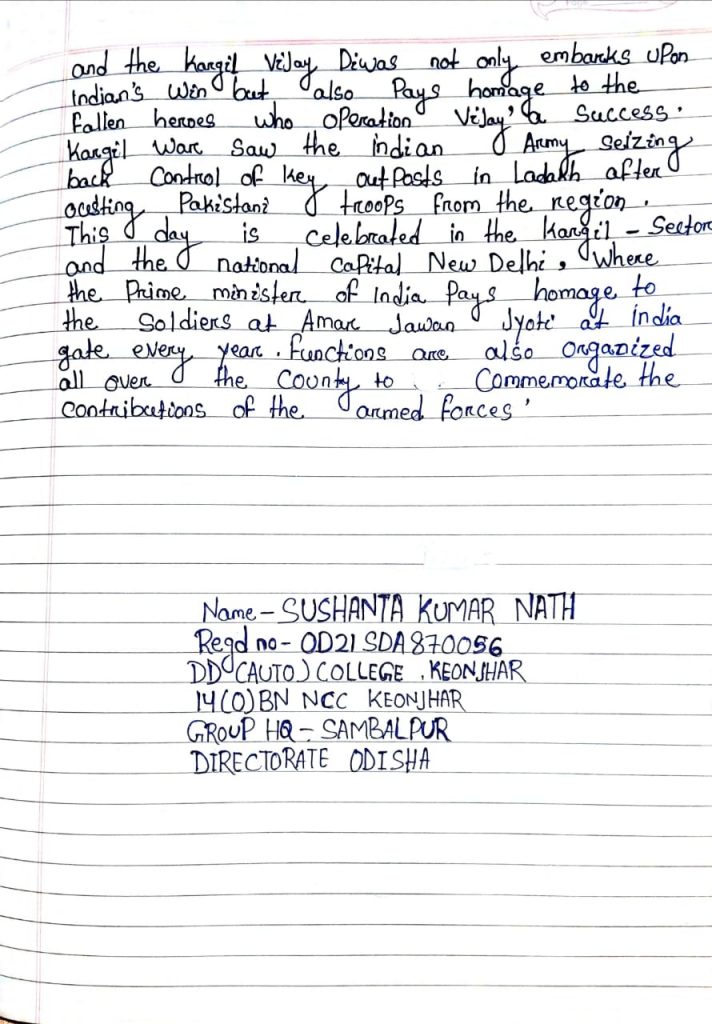 and the Kargil Vijay Diwas not only embarks upon
Indian's win but also Pays homage to the
fallen heroes who operation Vijay' a Success.
Kargil War Saw the indian Army Seizing
back Control of key outPosts in Ladakh after
ocusting Pakistani troops from the region.
This day is celebrated in the Kargil - Sector
and the national Capital New Delhi, Where
the Prime minister of India Pays homage to
the Soldiers at Amar Jawan Jyoti at India
gate every year. functions are also Organized
all over the County to Commemorate the
Contributions of the armed forces'
Name - SUSHANTA KUMAR NATH
Regd no - OD21SDA870056
DD (AUTO) COLLEGE, KEONJHAR
14(O)BN NCC KEONJHAR
GROUP HQ - SAMBALPUR
DIRECTORATE ODISHA